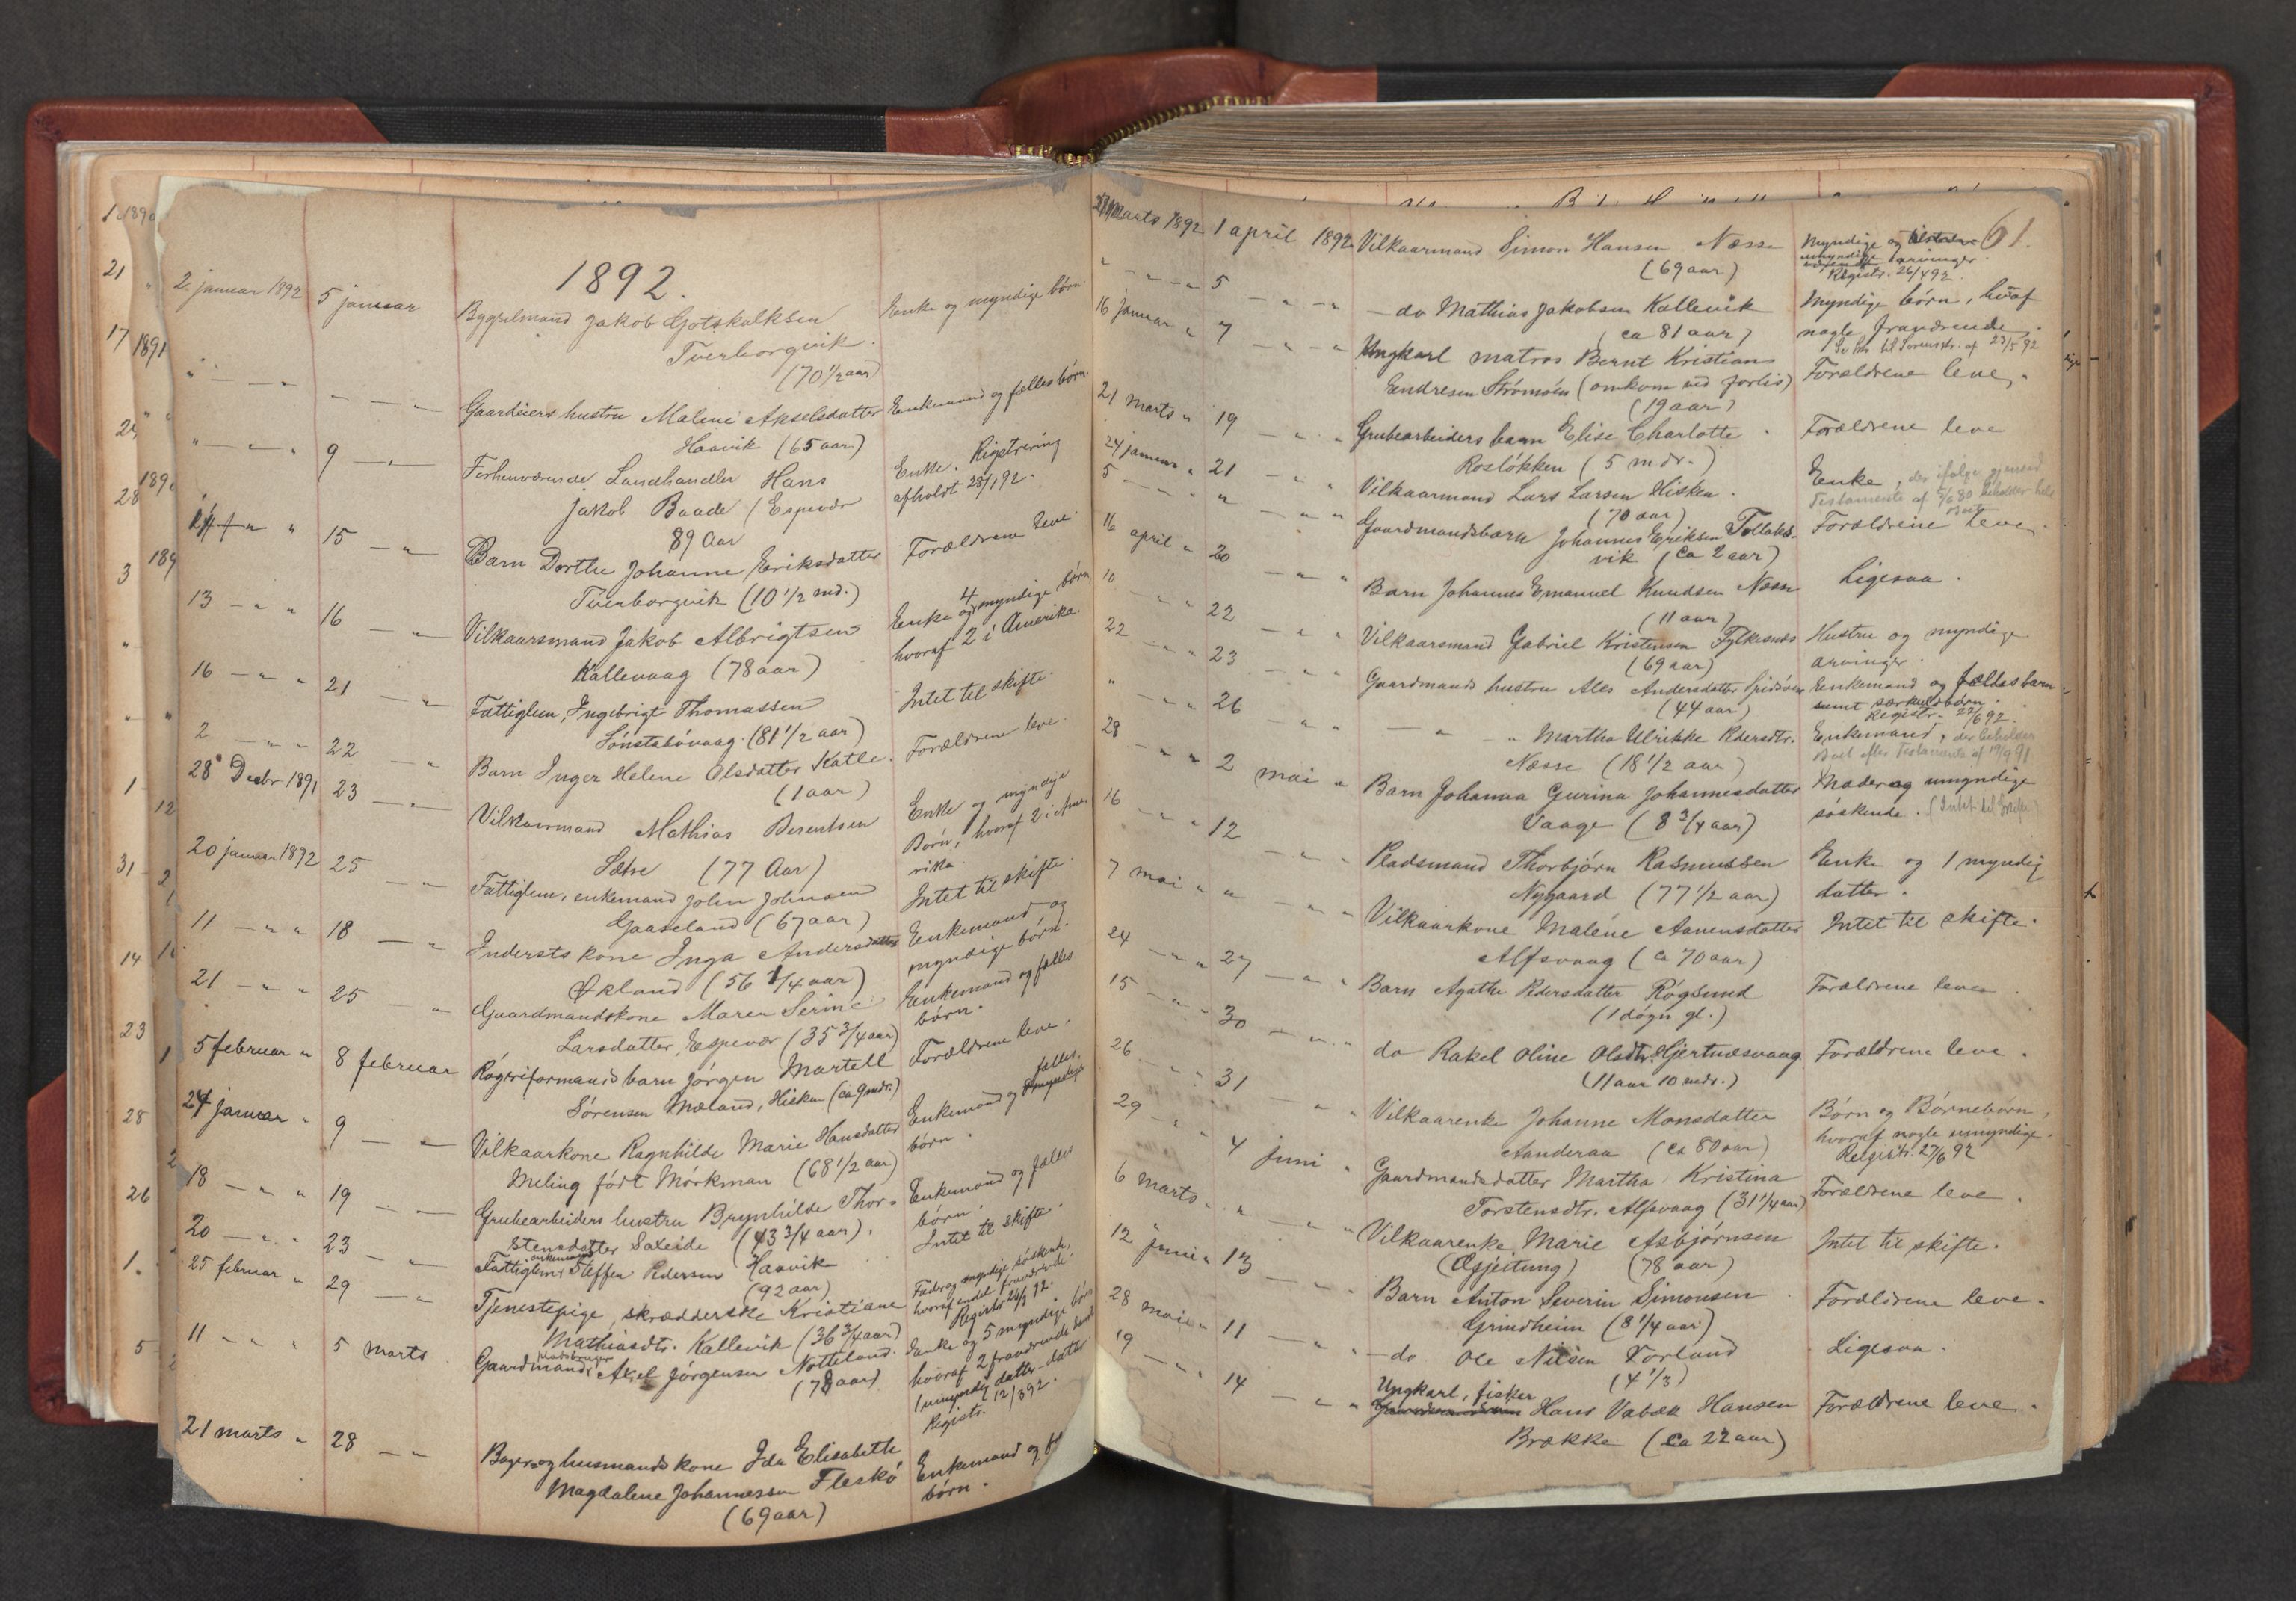 1892.
2 januar 1892 5 januar Bygselmand Jakob Gotskalksen Enke og myndige børn
Tverborgvik.
(70 1/2 aar)
" — " — " — " — Gaardeiers hustru Malene Akselsdatter Enkemand og fælles børn.
Haavik (65 aar)
" — " " 9 — " Forhenværende Landhandler Hans Enke. Registrering
Jakob Baade / Espevær afholdt 28/1 92.
89 Aar
" " 15 — " Barn Dorthe Johanne Eriksdatter Forældrene leve.
Tverborgvik (10 1/2 md.)
13 — " " 16 — " Vilkaarsmand Jakob Albrigtsen Enke og 4 myndige børn
Kallevaag (78 aar) hvoraf 2 i Amerika.
16 — " " 21 — " Fattiglem, Ingebrigt Thomassen Intet til skifte.
Sønstabøvaag. (81 1/2 aar)
2 — " " 22 — " Barn Inger Helene Olsdatter Katle. Forældrene leve.
(1 aar)
28 Decbr 1891 23 — " Vilkaarmand Mathias Berentsen Enke og myndige
Sætre (77 Aar) Børn, hvoraf 2 i Ame
rika
20 januar 1892 25 — " Fattiglem, enkemand John Johnsen Intet til skifte.
Gaaseland (67 aar)
11 — " " 18 — " Inderstskone Inga Andersdatter Enkemand og
Økland (56 1/4 aar) myndige børn.
21 — " " 25 — " Gaardmandskone Maren Serine Enkemand og fælles
Larsdatter, Espevær (35 3/4 aar) børn.
5 februar " 8 februar Røgeriformands barn Jørgen Martell Forældrene leve.
Sørensen Mæland, Hisken (ca 9 mdr.)
24 januar " 9 — " Vilkaarkone Ragnhilde Marie Hansdatter Enkemand og fælles,
Meling født Mørkman (68 1/2 aar) børn.
18 — " " 19 — " Grubearbeiders hustru Brynhilde Thor- Enkemand og fælles
stensdatter Sakseide (43 3/4 aar). børn.
20 — " " 23 — " Fattiglem, enkemand Steffen Pedersen Haavik Intet til skifte.
(92 aar)
25 februar " 29 — " Tjenestepige, skrædderske Kristiane Fader og myndige søskende,
Mathiasdtr. Kallevik (36 3/4 aar) hvoraf endel fraværende.
11 — " " 5 marts Gaardmand, Aksel Jørgensen Notteland. Enke og 5 myndige børn
(78 aar) hvoraf 2 fraværende samt
1 umyndig datter-datter
Registr. 12/3 92.
21 marts " 28 — " Bager og husmandskone Ida Elisabeth Enkemand og
Magdalene Johannessen Fleskø børn.
(69 aar)
61.
marts 1892 1 april 1892 Vilkaarmand Simon Hansen Næsse Myndige og
(69 aar) umyndige arvinger.
Registr. 26/4 92.
" — " 5 — " " — do Mathias Jakobsen Kallevik Myndige børn, hvoraf
(ca 81 aar) nogle fraværende.
16 januar " 7 — " " Ungkarl matros Bernt Kristian Forældrene leve.
Endresen Strømøen (omkom ved forlis)
(19 aar)
21 marts " 19 — " " Grubearbeiders barn Elise Charlotte Forældrene leve
Rosløkken (5 mdr.)
24 januar " 21 — " " Vilkaarmand Lars Larsen Hisken. Enke, der ifølge gjensid.
(70 aar) Testamente af 5/6 80 beholder hele
Boet
5 — " " — " " Gaardmandsbarn Johannes Eriksen Tollaks- Forældrene leve.
vik (ca 2 aar)
16 april " 20 — " " Barn Johannes Emanuel Knudsen Næsse Ligesaa.
(11 aar)
10 — " " 22 — " " Vilkaarsmand Gabriel Kristensen Fylkesnes Hustru og myndige
(69 aar) arvinger.
22 — " " 23 — " " Gaardmands hustru Ales Andersdatter Enkemand og fælles barn
(44 aar) samt særkuldsbørn.
Registr. 22/6 92.
" — " " 26 — " " — " — " Martha Ulrikke Pedersdtr. Enkemand, der beholder
Næsse (18 1/2 aar) Boet efter Testamente af 19/9 91
28 — " " 2 mai " Barn Johanna Gurina Johannesdatter Moder og umyndige
Vaage (8 3/4 aar) søskende. (Intet til Skifte)
16 — " " 12 — " " Pladsmand Thorbjørn Rasmussen Enke og 1 myndig
Nygaard (77 1/2 aar) datter.
7 mai " " — " " Vilkaarkone Malene Aanensdatter Intet til skifte.
Alfsvaag (ca 70 aar)
24 — " " 27 — " " Barn Agathe Pedersdatter Røgsund Forældrene leve.
(1 døgn gl.)
15 — " " 30 — " " do Rakel Oline Olsdtr. Gjertnæsvaag. Forældrene leve.
(11 aar 10 mdr.)
26 — " " 31 — " " Vilkaarenke Johanne Monsdatter Børn og Børnebørn,
Aanderaa (ca 80 aar) hvoraf nogle umyndige.
Registr. 27/6 92
29 — " " 4 juni " Gaardmandsdatter Martha Kristina Forældrene leve.
Torstensdtr. Alfsvaag (31 1/4 aar)
6 marts " " — " " Vilkaarenke Marie Asbjørnsen Intet til skifte.
(78 aar)
12 juni " 13 — " " Barn Anton Severin Simonsen Forældrene leve.
Grindheim (8 1/4 aar)
28 mai " 11 — " " — do Ole Nilsen Vorland Ligesaa.
(4 1/3)
19 — " " 14 — " " Ungkarl, fisker Hans Vabæk Hansen Forældrene leve.
Brække (ca 22 aar)